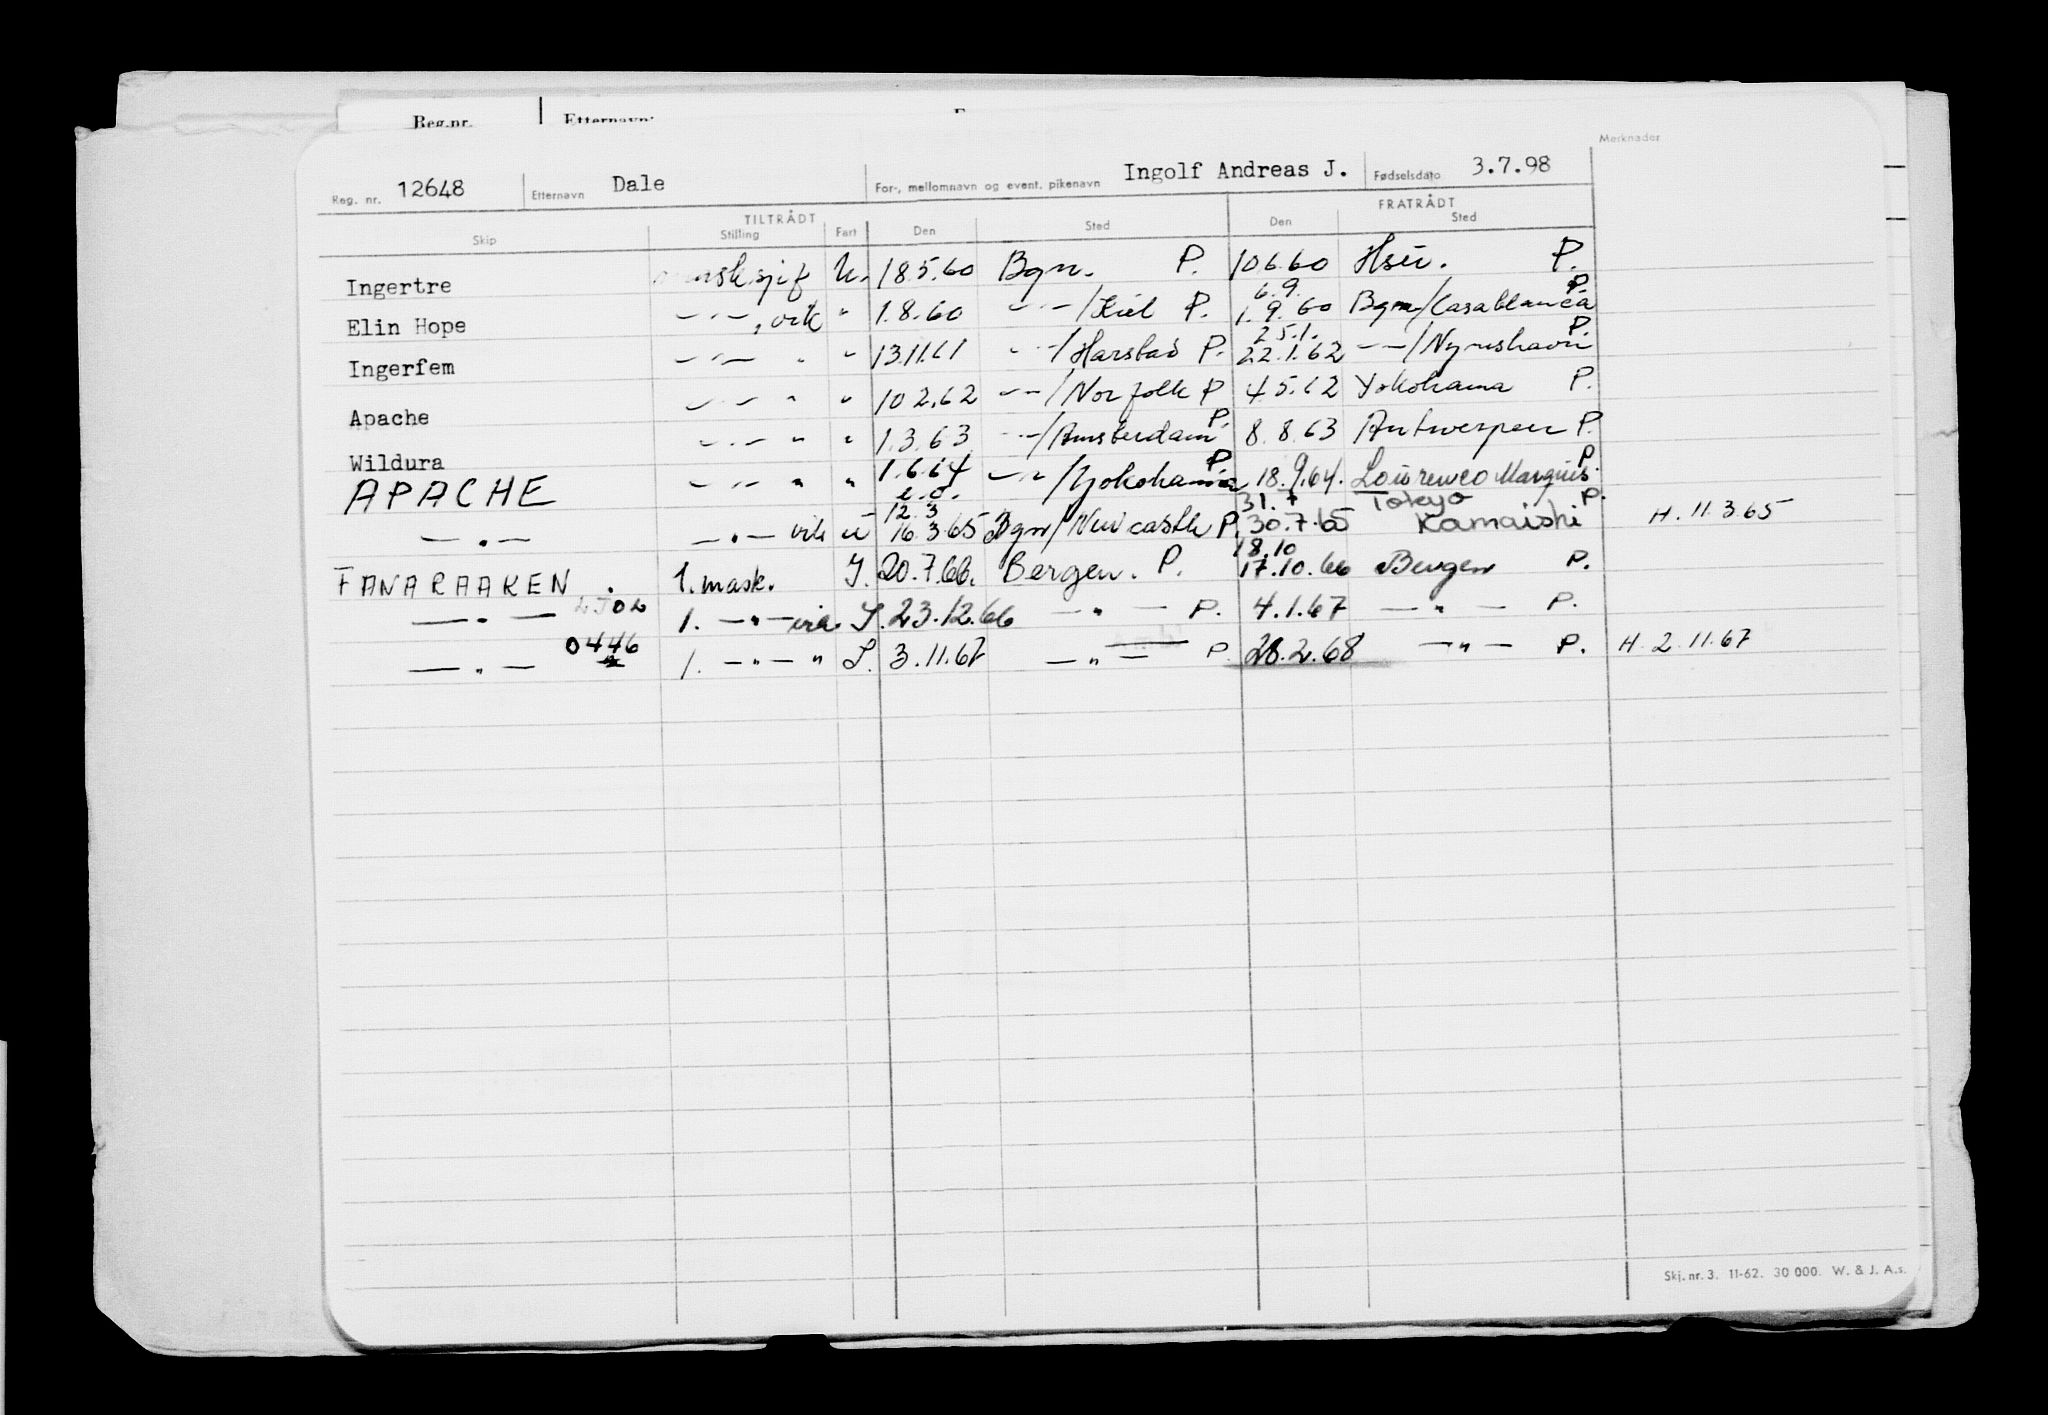 Reg.nr. Etternavn:
Merknader
Reg. nr. 12648 Etternavn Dale For-, mellomnavn og event. pikenavn Ingolf Andreas J. Fødselsdato 3.7.98
TILTRÅDT FRATRÅDT
Skip Stilling Fart Den Sted Den Sted
Ingertre U. 18.5.60 Bgn. P. 10.6.60 P.
6.9. P.
Elin Hope — " — , vik " 1.8.60 — " — / Kiel P. 1.9.60 Bgn/Casablanca
25.1. P.
Ingerfem — " — " " 13.11.61 — " — / Harstad P. 22.1.62 — " — / Nynshavn
Apache — " — " " 10.2.62 — " — / Norfolk P 4.5.62 Yokohama P.
P.
Wildura — " — " " 1.3.63 — " — / Amsterdam 8.8.63 Antwerpen P.
P P
APACHE — " — " " 1.6.64 — " — / Yokohama 18.9.64. Lourenco Marques.
12.3 31.7 Tokyo / P.
— " — — " — vik u 16.3.65 Bgn/Newcastle P. 30.7.65 Kamaishi H. 11.3.65
18.10
FANARAAKEN. 1. mask. I. 20.7.66. Bergen. P. 17.10.66 Bergen P.
— " — 1. — " — I. 23.12.66 — " — P. 4.1.67 — " — P.
— " — 0446 1. — " — " I. 3.11.67 — " — P. 28.2.68 — " — P. H. 2.11.67
Skj. nr. 3. 11-62. 30 000. W. & J. A.s.